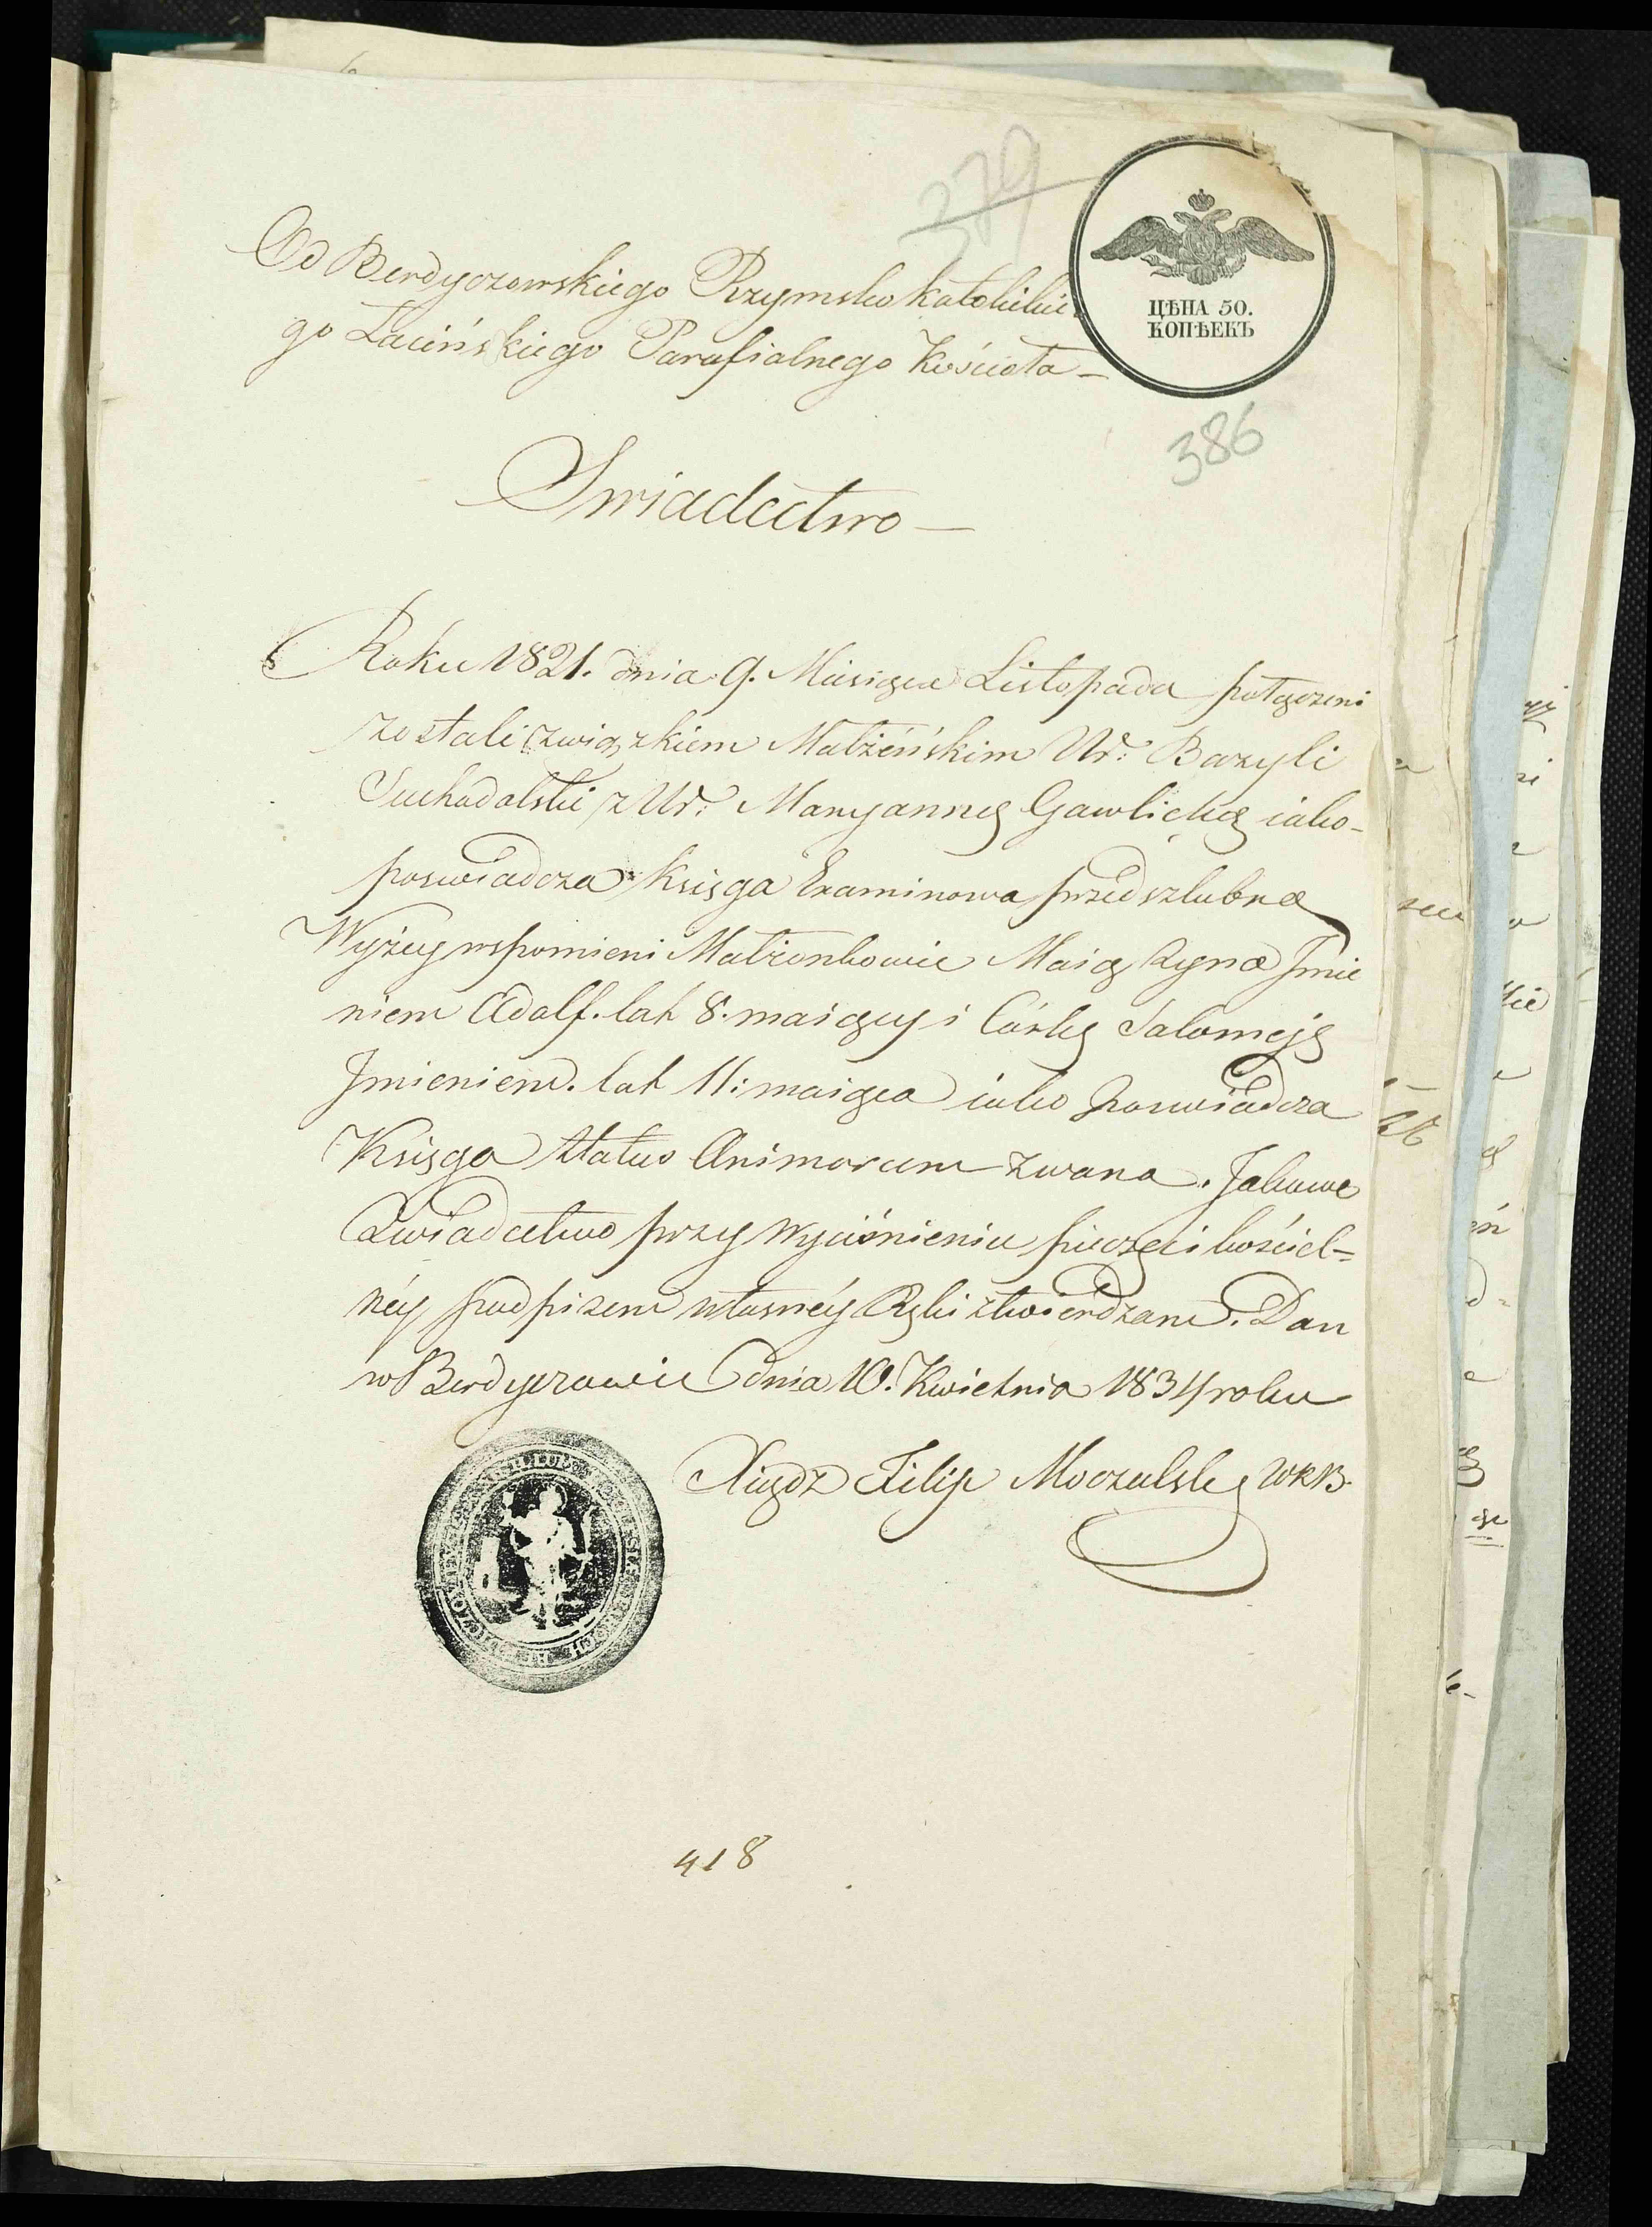 379
Od Berdyczowskiego Rzymsko katolickie
go Łacińskiego Parafialnego Kościoła –
ЦѢНА 50.
КОПѢЕКЪ
386
Swiadectwo –
Roku 1821. dnia 9. Miesiąca Listopada połączeni
zostali związkiem Małżeńskim Ur: Bazyli
Suchodolski z Ur: Maryanną Gawlicką iako-
poswiadcza księga Examinowa przedszlubna
Wyżey wspomieni Małżonkowie Maią Syna Jmie
niem Adolf. lat 8. maiący i Córkę Salomeję
Jmieniem. lat 11: maiąca iako poswiadcza
Księga Status Animarum zwana. Jakowe
Swiadectwo przy Wyciśnieniu pieczęci kościel=
néy podpisem własnéy Ręki ztwierdzam. Dan
w Berdyczowie dnia 10. Kwietnia 1834 roku
Xiądz Filip Moczulski WKB.
418